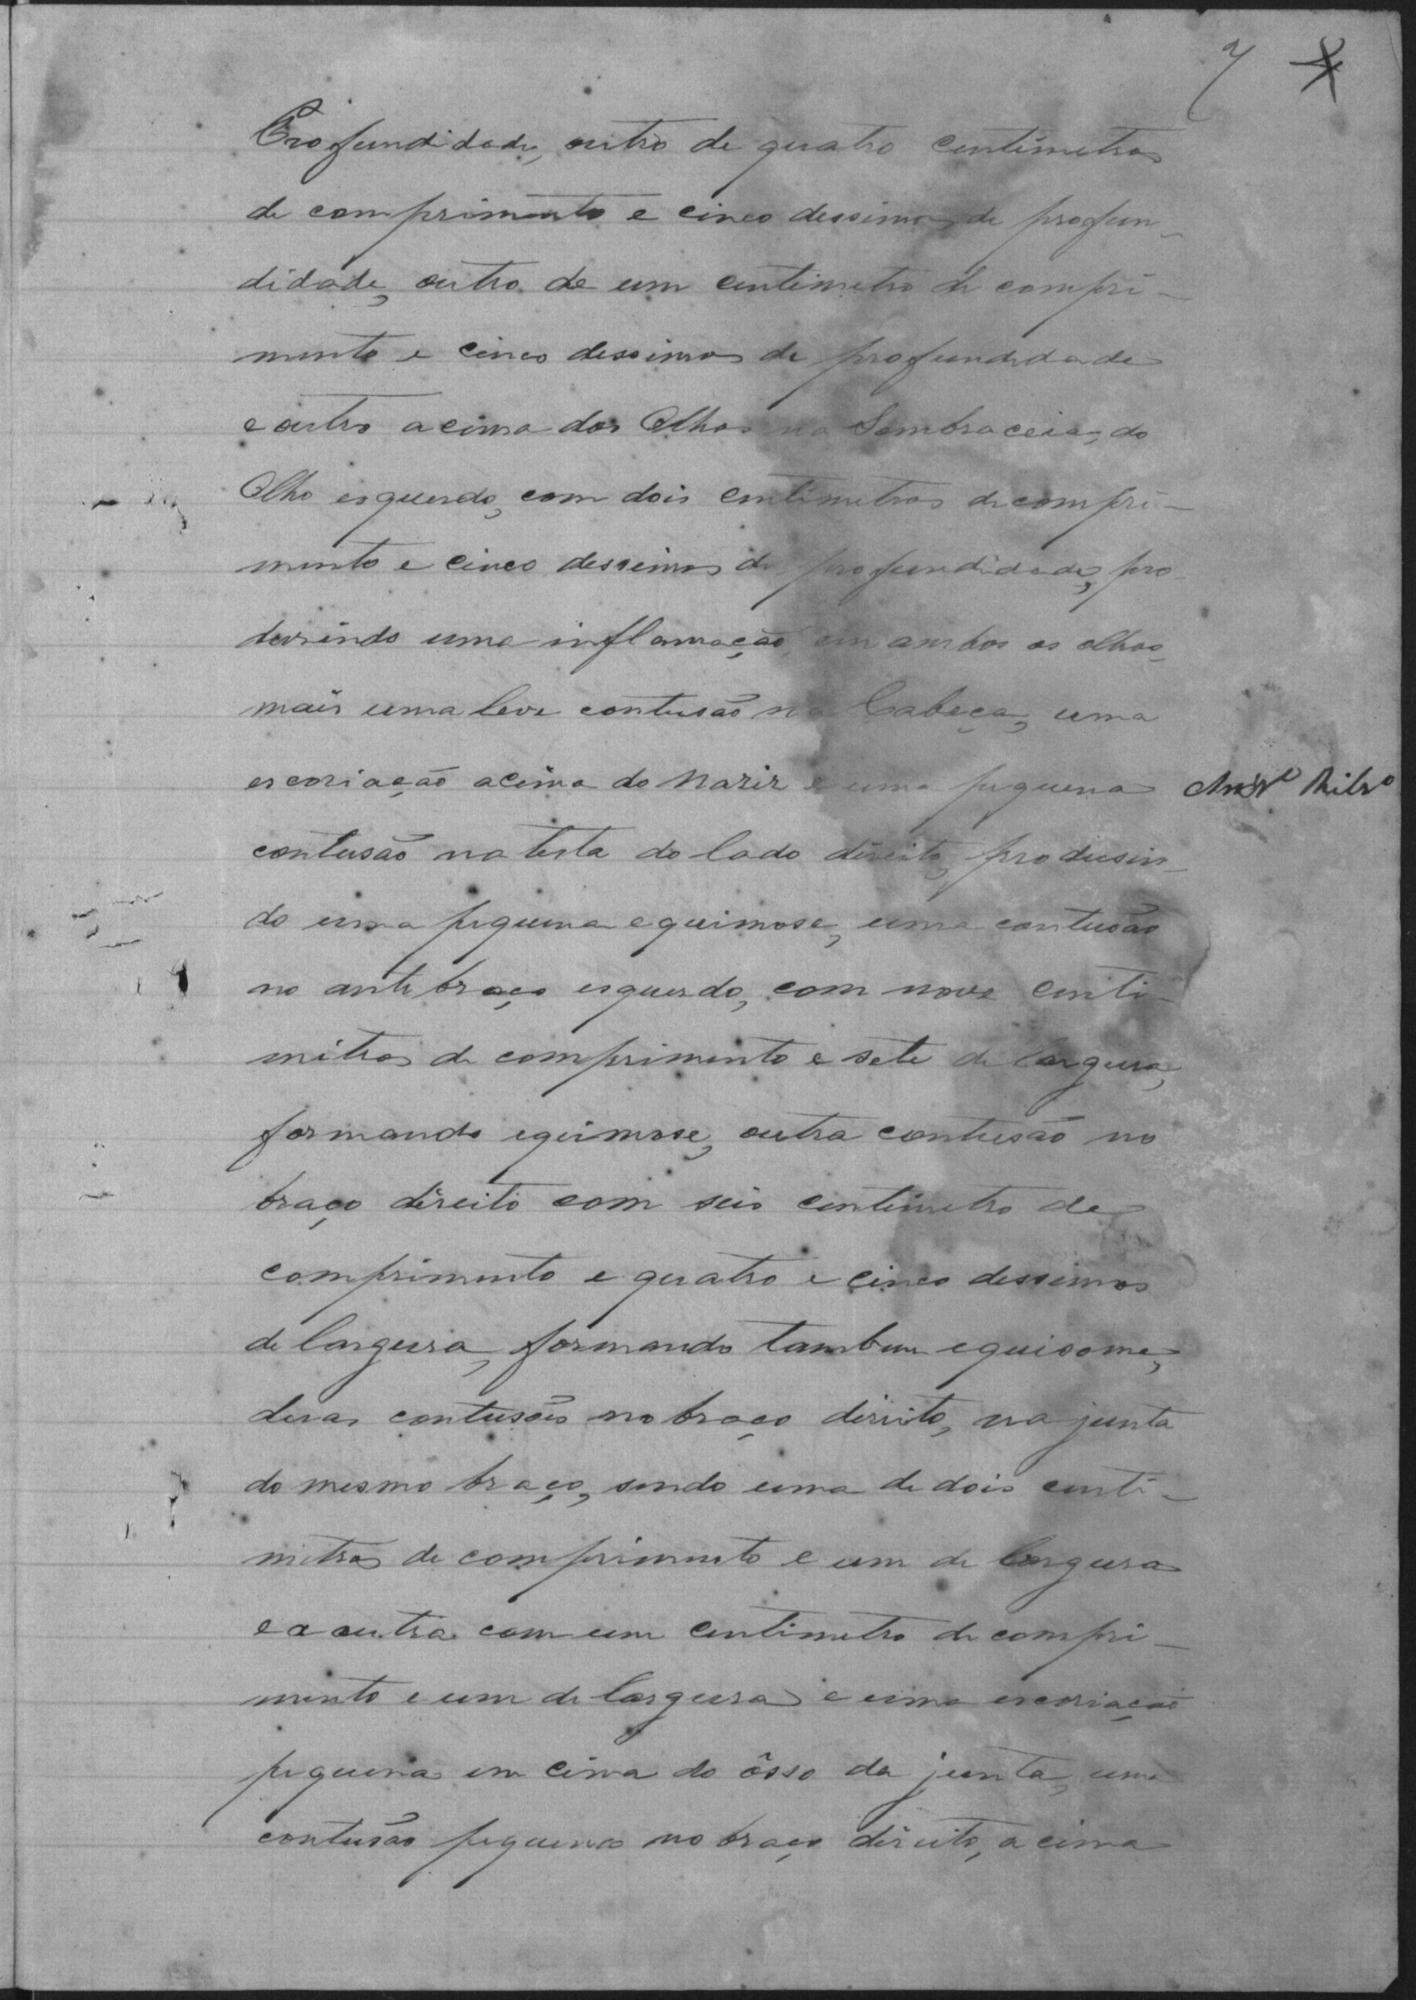 7
Profundidade, outro de quatro centimetros
de comprimento e cinco dessimos de profun-
didade, outro de um centimetro de compri-
mento e cinco dessimos de profundidade
e outro acima dos Olhos na Sombraceia do
Olho esquerdo, com dois centimetros de compri-
mento e cinco dessimos de profundidade, pro
dusindo uma inflamação em ambos os olhos,
mais uma leve contusão na Cabeça, uma
escoriação acima do Nariz e uma piquena
contusão na testa do lado direito, produsin-
do uma piquena equimose, uma contusão
no ante braço esquerdo, com nove centi-
mitros de comprimento e sete de largura,
formando equimose, outra contusão no
braço direito com seis centimetro de
comprimento e quatro e cinco dessimos
de largura, formando tambem equisome,
duas contusões no braço direito, na junta
do mesmo braço, sendo uma de dois centi-
mitros de comprimento e um de largura
e a outra com um centimetro de compri-
mento e um de largura e uma escoriação
piquena em cima do ôsso da junta, uma
contusão piquena no braço direito, a cima